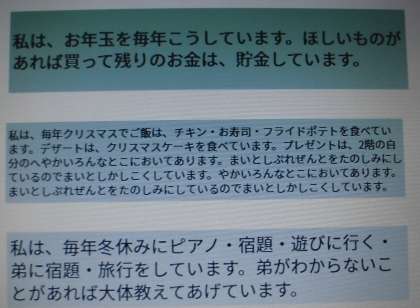 私は、お年玉を毎年こうしています。ほしいものが
あれば買って残りのお金は、貯金しています。
私は、毎年クリスマスでご飯は、チキン・お寿司・フライドポテトを食べてい
ます。デザートは、クリスマスケーキを食べています。プレゼントは、2階の自
分のへやかいろんなとこにおいてあります。まいとしぷれぜんとをたのしみにし
ているのでまいとしかしこくしています。やかいろんなとこにおいてあります。
まいとしぷれぜんとをたのしみにしているのでまいとしかしこくしています。
私は、毎年冬休みにピアノ・宿題・遊びに行く・
弟に宿題・旅行をしています。弟がわからないこ
とがあれば大体教えてあげています。